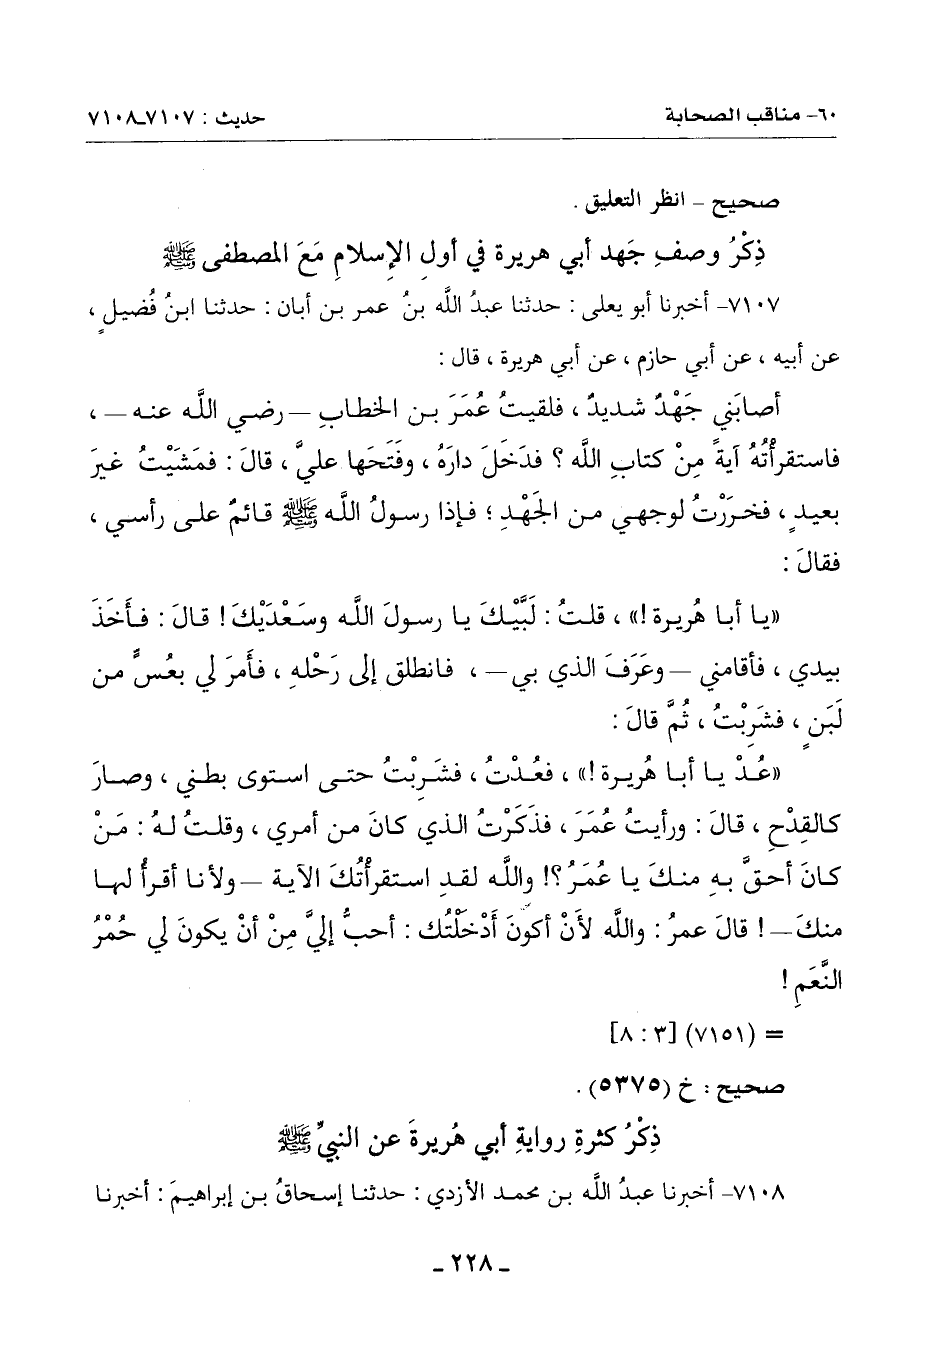 ٦٠- مناقب الصحابة حديث : ٧١٠٧ـ٧١٠٨
صحيح – انظر التعليق .
ذِكْرُ وصفِ جَهد أبي هريرة في أولِ الإسلامِ مَعَ المصطفى ﷺ
٧١٠٧- أخبرنا أبو يعلى : حدثنا عبدُ اللَّه بنُ عمر بن أبان : حدثنا ابنُ فُضيلٍ ،
عن أبيه ، عن أبي حازم ، عن أبي هريرة ، قال :
أصابَني جَهْدٌ شديدٌ ، فلقيتُ عُمَرَ بـن الخطابِ –رضـي اللَّه عنـه – ،
فاستقرأْتُهُ آيةً مِنْ كتابِ اللَّه ؟ فدَخَلَ دارَهُ ، وفَتَحَها عليَّ ، قالَ : فمَشَيْتُ غيرَ
بعيدٍ ، فخـرَرْتُ لوجهـي مـن الجَهْـدِ ؛ فـإذا رسـولُ اللَّـه ﷺ قـائمٌ علـى رأسـي ،
فقالَ :
«يـا أبـا هُريـرة !» ، قلـتُ : لَبَّيْـكَ يـا رسـولَ اللَّـه وسَـعْدَيْكَ ! قـالَ : فـأَخَذَ
بيدي ، فأقامني –وعَرَفَ الذي بي– ، فانطلق إلى رَحْلهِ ، فأَمرَ لي بعُسٍّ من
لَبَنٍ ، فشَرِبْتُ ، ثُمَّ قالَ :
«عُـدْ يـا أبـا هُريـرة !» ، فعُـدْتُ ، فشَـرِبْتُ حتـى اسـتوى بطنـي ، وصـارَ
كالقِدْحِ ، قالَ : ورأيتُ عُمَرَ ، فذَكَرْتُ الذي كانَ من أمري ، وقلتُ لهُ : مَنْ
كانَ أحقَّ بهِ منكَ يا عُمَرُ ؟! واللَّه لقدِ استقرأْتُكَ الآية –ولأنا أقرأُ لها
منكَ– ! قالَ عمرُ : واللَّه لأَنْ أكونَ أَدْخَلْتُك : أحبُّ إليَّ مِنْ أنْ يكونَ لي حُمْرُ
النَّعَمِ !
= (٧١٥١) [٣ : ٨]
صحيح : خ (٥٣٧٥) .
ذِكْرُ كثرةِ روايةِ أبي هُريرةَ عن النبيِّ ﷺ
٧١٠٨- أخبرنا عبدُ اللَّه بن محمد الأزدي : حدثنا إسحاقُ بن إبراهيمَ : أخبرنا
ـ ٢٢٨ ـ